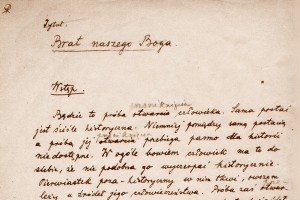 Tytuł:
Brat naszego Boga
Wstęp.
Będzie to próba otwarcia człowieka. Sama postać
jest ściśle historyczna. Niemniej pomiędzy samą postacią
a próbą jej przebiega pasmo dla historii
niedostępne. W ogóle bowiem człowiek ma to do
siebie, że nie podobna go wyczerpać historycznie.
Pierwiastek poza-historyczny w nim tkwi, owszem
leży u źródeł jego człowieczeństwa. Próba zaś